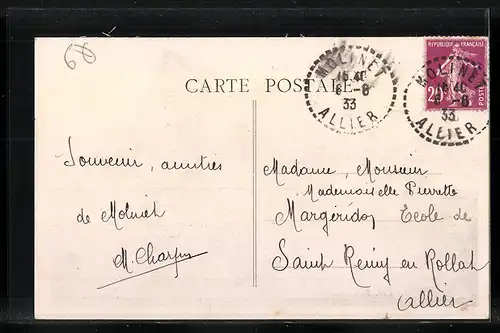 CARTE POSTALE
MOLINET
16 40
6 -8
33
ALLIER
REPUBLIQUE FRANÇAISE
POSTES
MOLINET
16 40
6 -8
33
ALLIER
Souvenir, amitiés
de Molinet
Madame, Monsieur
Mademoiselle Pierrette
Margéridon Ecole de
Saint Remy en Rollat
Allier